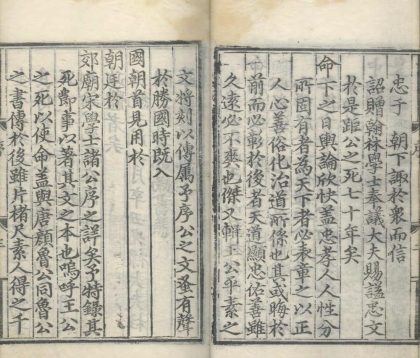 忠于　朝下諏於衆而信
詔贈翰林學士奉議大夫賜謚忠文
於是距公之死七十年矣
命下之日輿論欣快蓋忠孝人人性分
所固有者為天下者必表章之以正
人心善俗化治道所係也其或晦於
前而必彰於後者天道顯忠佑善雖
久遠必不爽也傑又輯　公平素之
文將刻以傳属予序公之文蚤有聲
於勝國時既入
國朝首見用於
朝廷於
郊廟宋學士諸公序之詳矣予特錄其
死節事以著其文之本也嗚呼王公
之死以使命蓋與唐顏魯公同魯公
之書傳於後雖片楮尺素人得之千